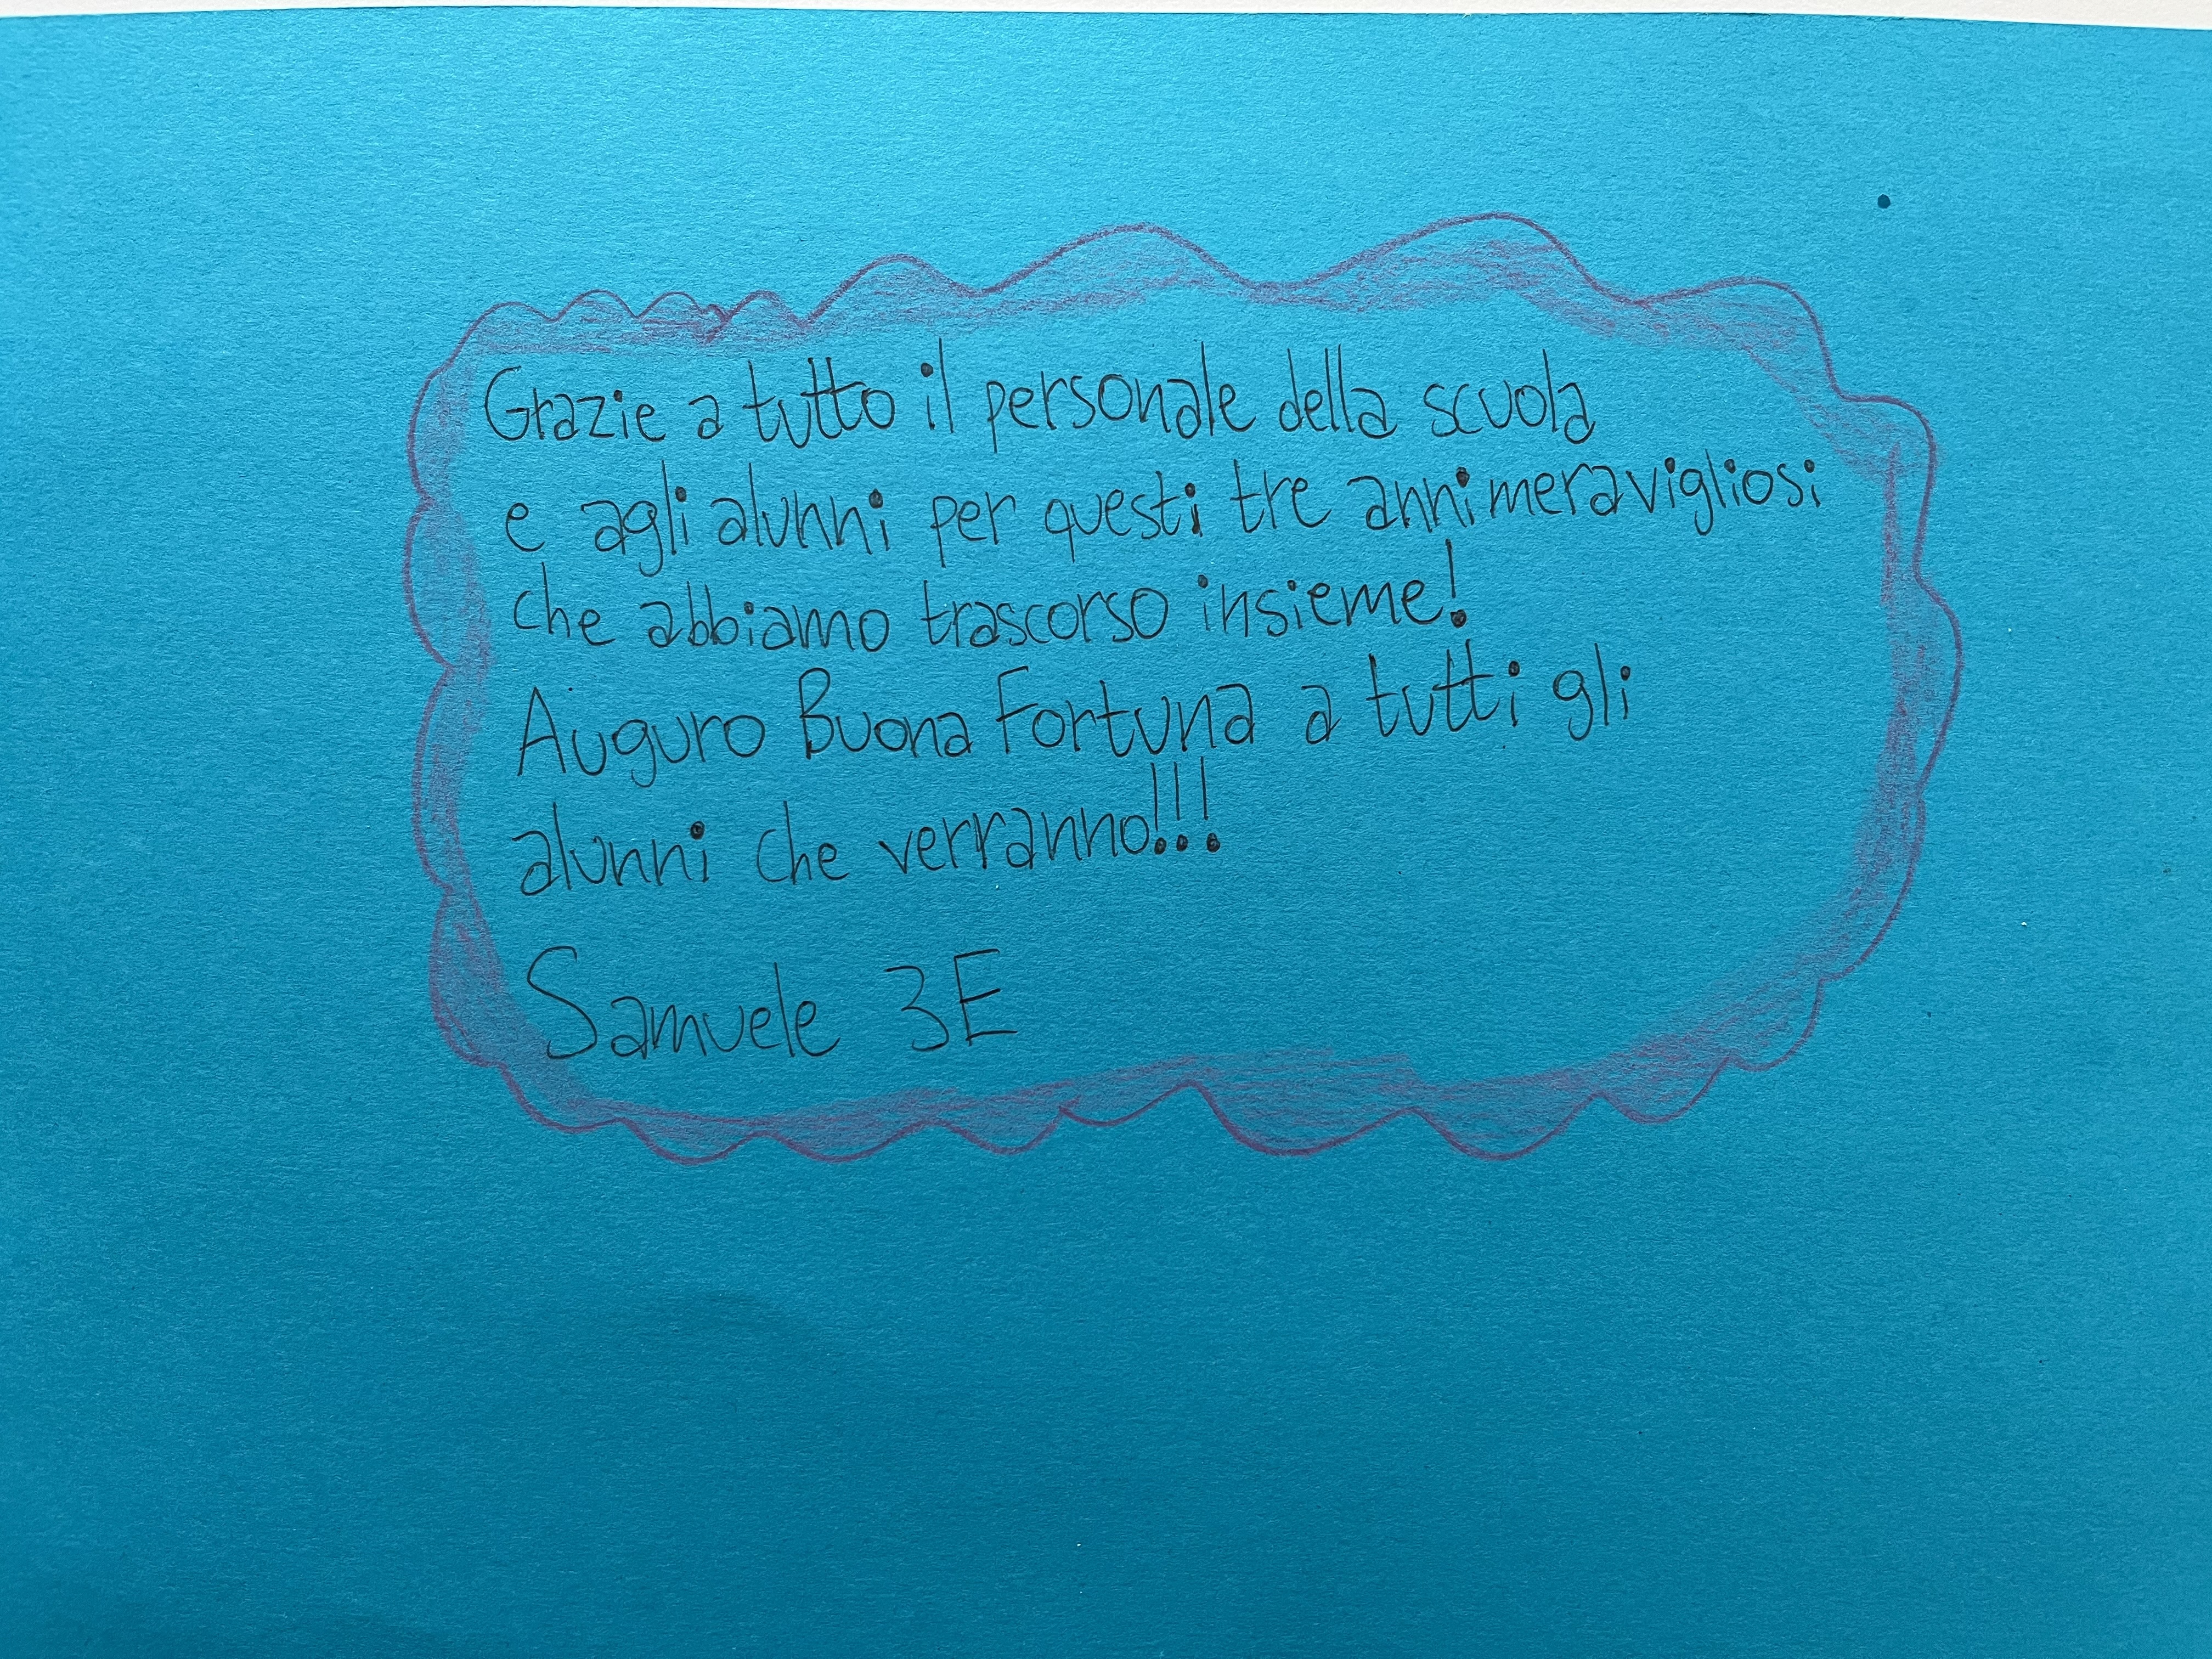 Grazie a tutto il personale della scuola
e agli alunni per questi tre anni meravigliosi
che abbiamo trascorso insieme!
Auguro Buona Fortuna a tutti gli
alunni che verranno!!!
Samuele 3E